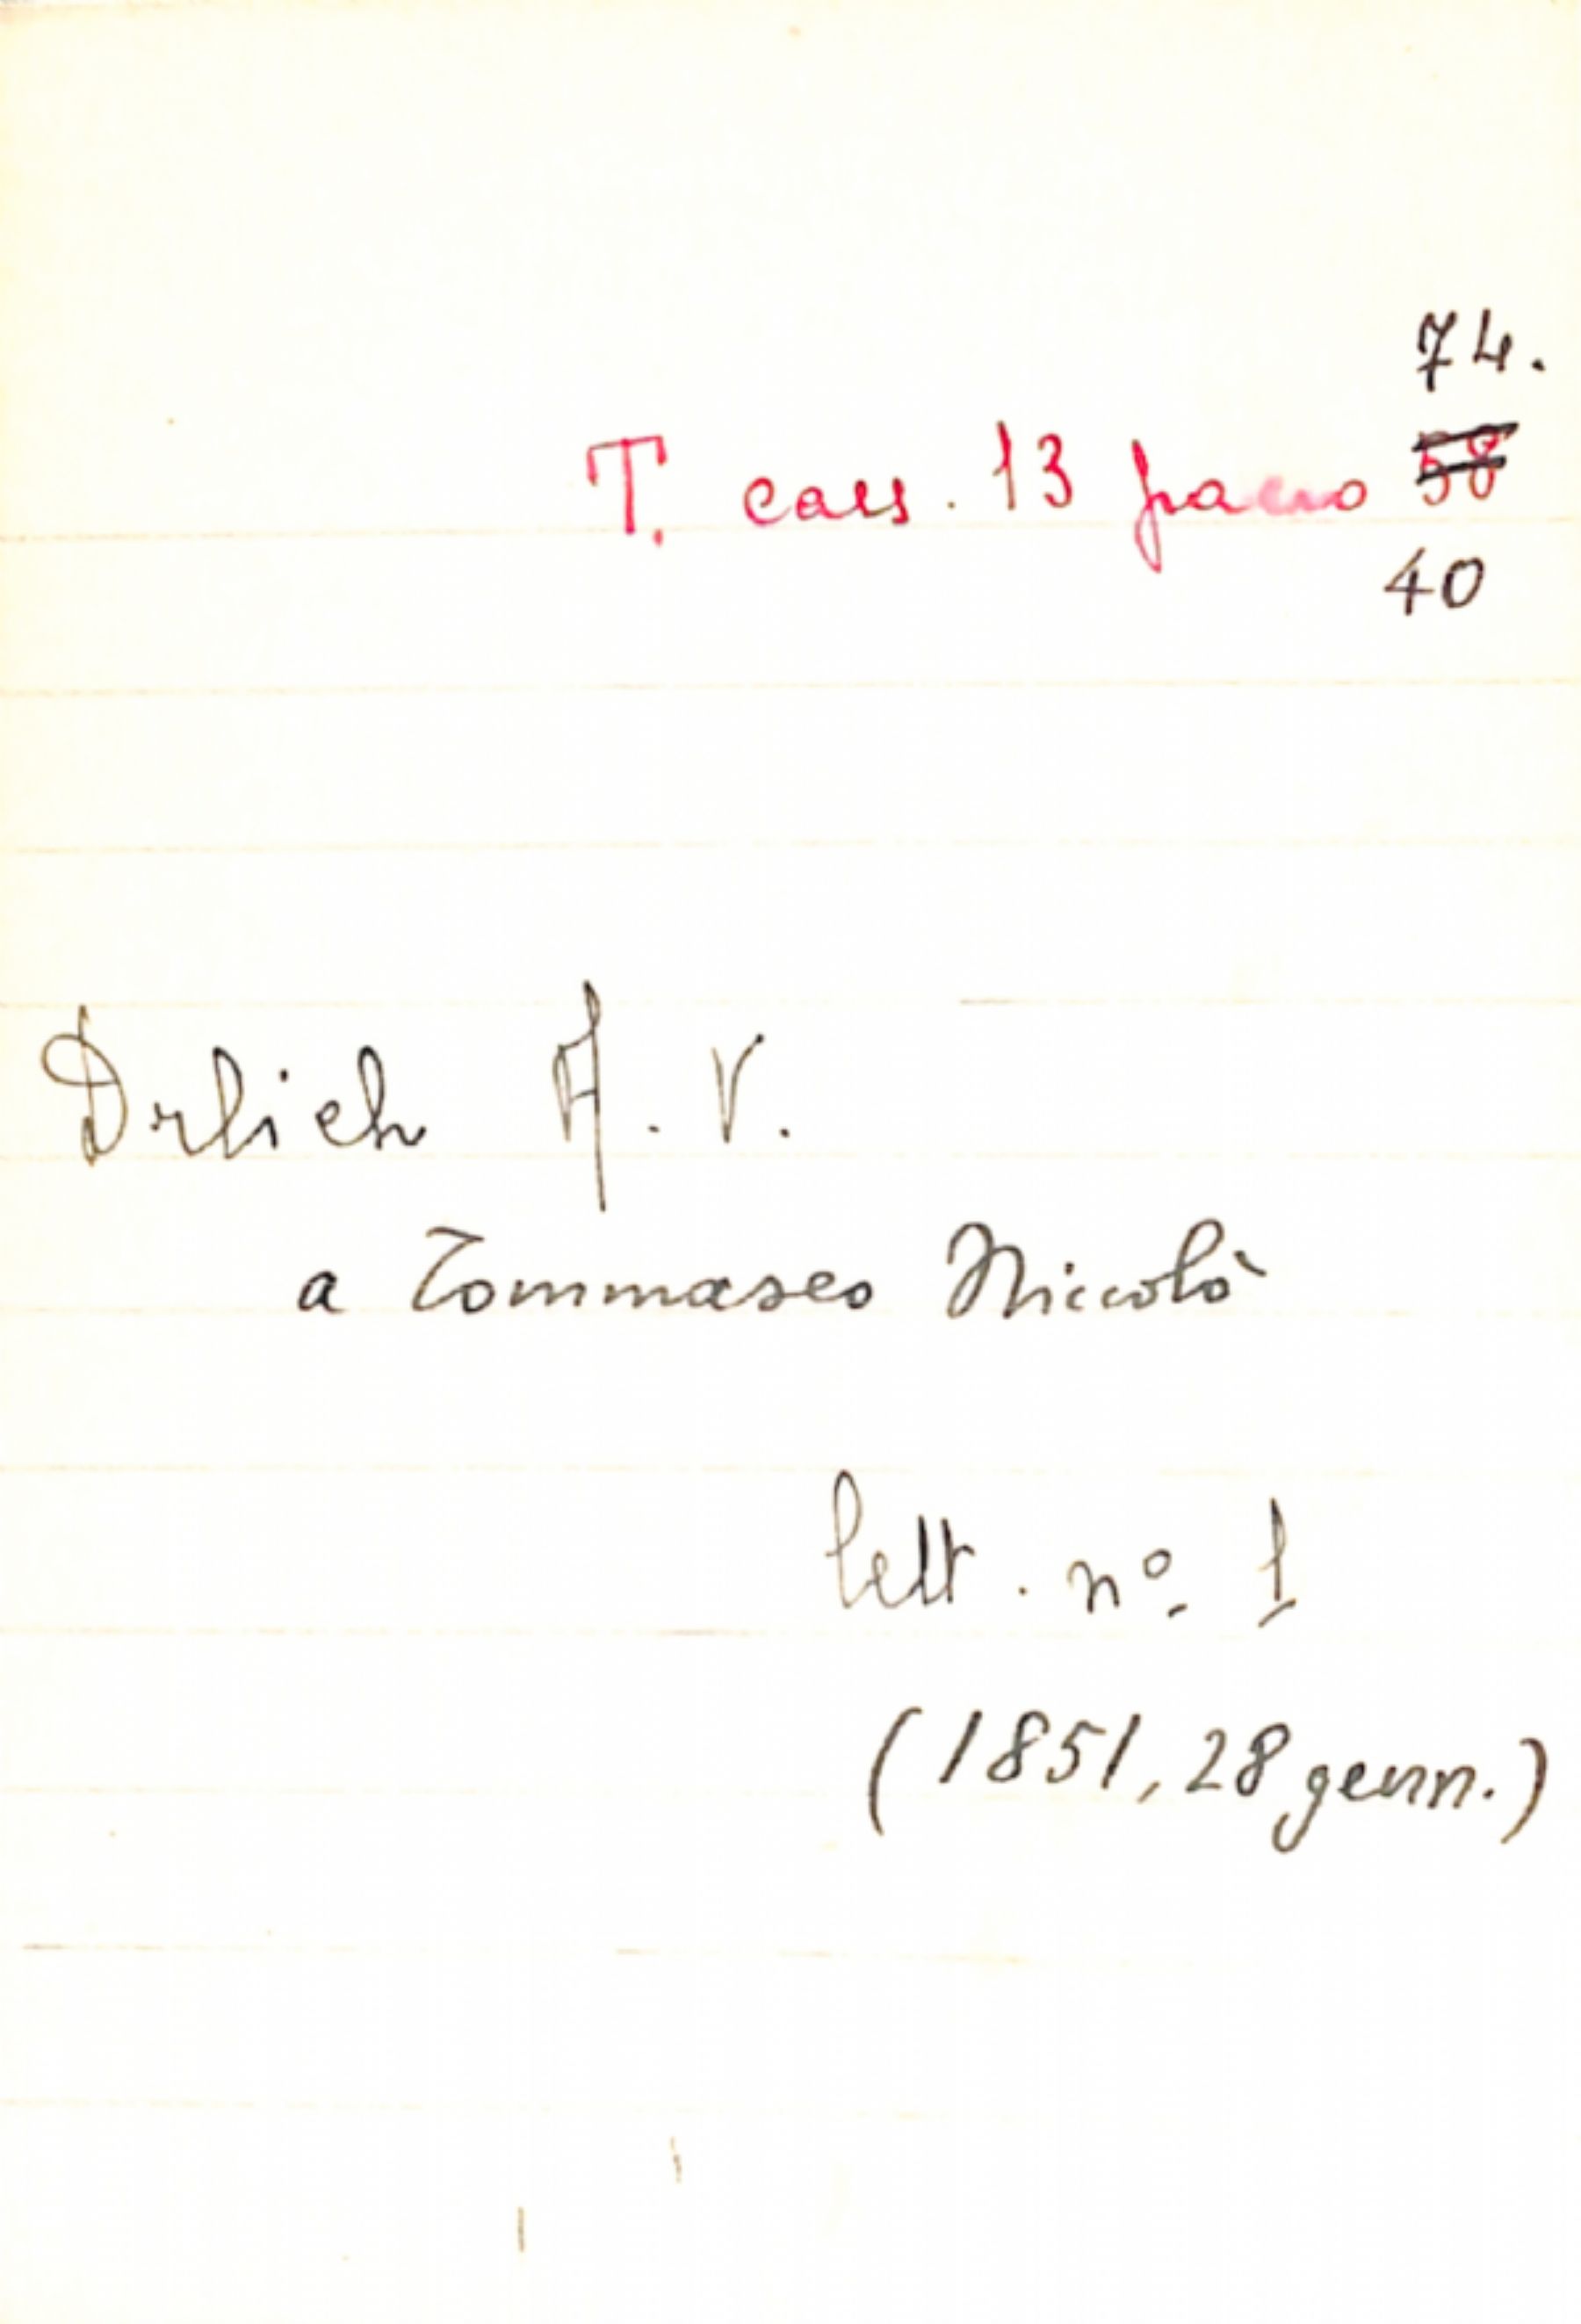 74.
T. cass. 13 pacco 58
40
Drlich A. V.
a Tommaseo Niccolò
lett. nº 1
(1851, 28 genn.)